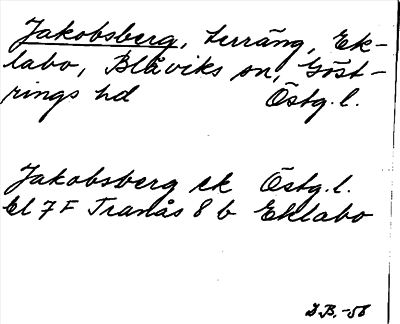 Jakobsberg, terräng, Ek-
labo, Blåviks sn, Göst-
rings hd Östg. l.
Jakobsberg ek Östg. l.
El 7F Tranås 8 b Eklabo
D.B. -58